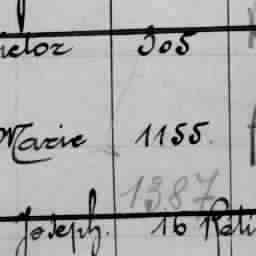 ictor 305
Marie 1155.
1387
Joseph. 16